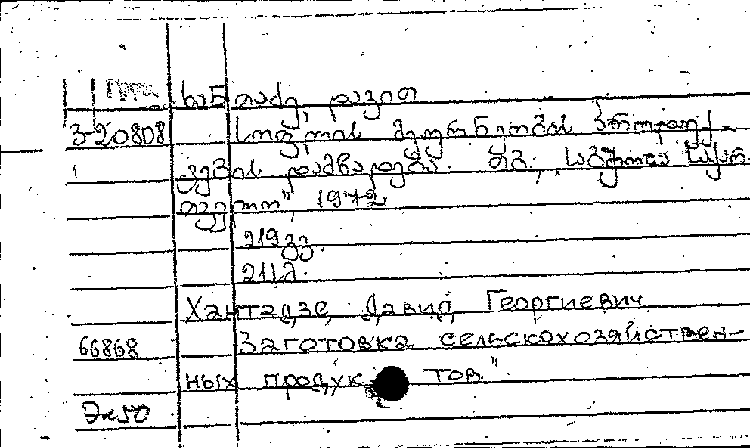 ხანთაძე, დავით
3-20808 სოფლის მეურნეობის პროდუქ-
ტების დამზადება. თბ., „საბჭოთა საქარ-
თველო", 1972
219 გვ.
Хантадзе, Давид Георгиевич
66868 Заготовка сельскохозяйствен-
ных продук тов"